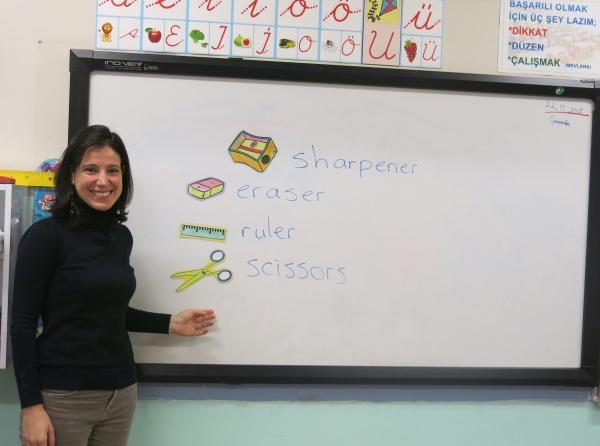 e i i o ö u ü
E İ I O Ö U Ü
BAŞARILI OLMAK
İÇİN ÜÇ ŞEY LAZIM;
*DİKKAT
*DÜZEN
*ÇALIŞMAK (MEVLANA)
INOVER
Çarşamba
sharpener
eraser
ruler
scissors